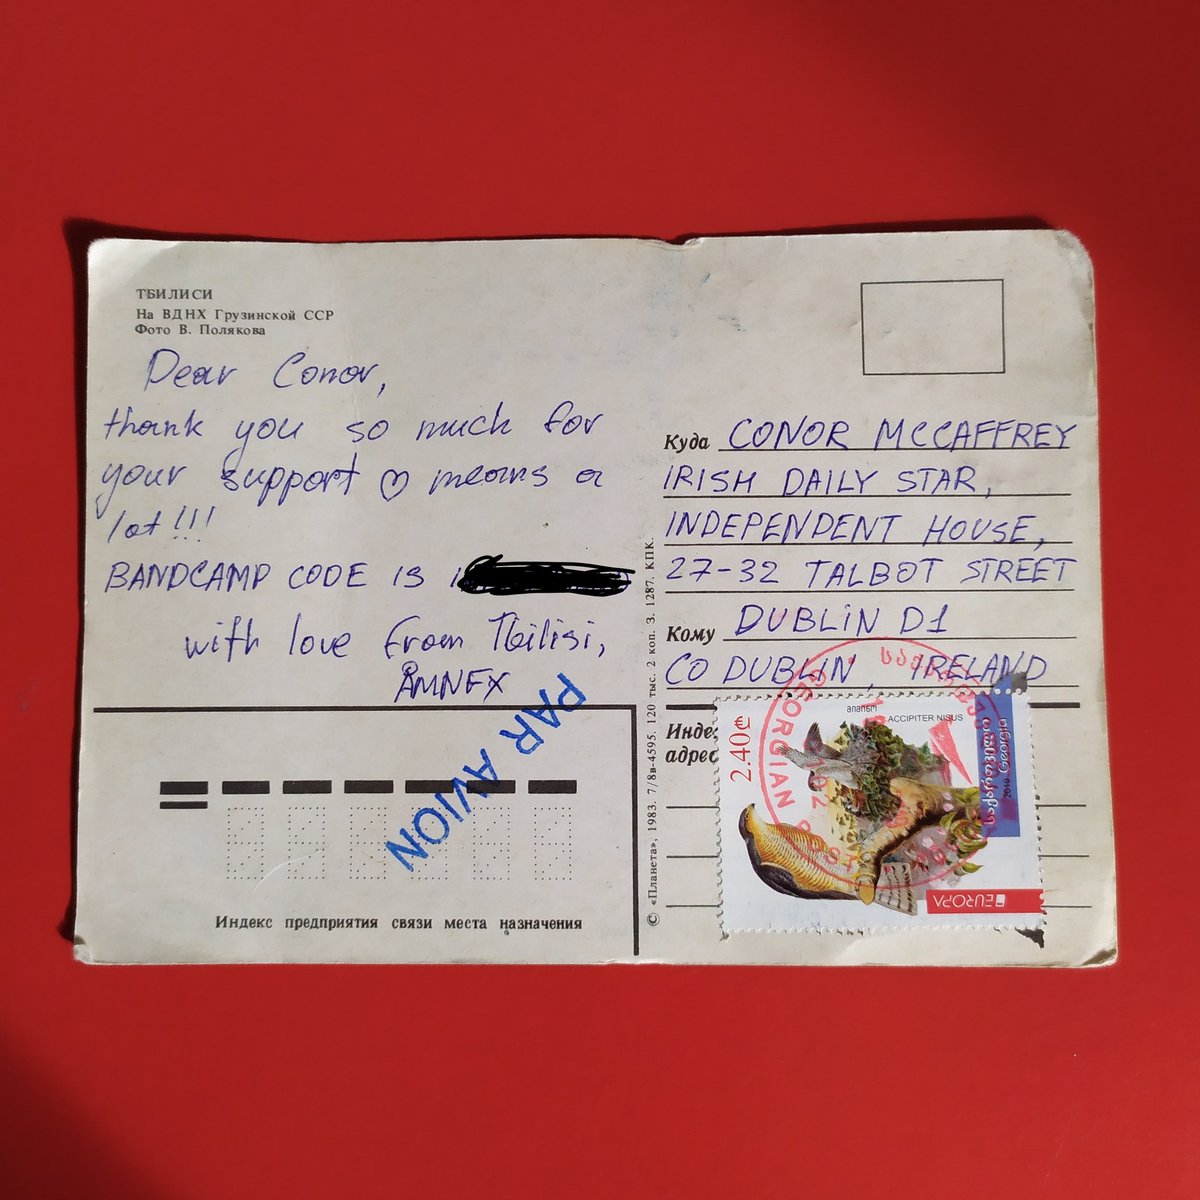 ТБИЛИСИ
На ВДНХ Грузинской ССР
Фото В. Полякова
Dear Conor,
thank you so much for
your support ♡ means a
lot!!!
BANDCAMP CODE IS
with love from Tbilisi,
AMNEX
PAR AVION
Индекс предприятия связи места назначения
© «Планета», 1983. 7/8в-4595. 120 тыс. 2 коп. З. 1287. КПК.
Куда CONOR MCCAFFREY
IRISH DAILY STAR,
INDEPENDENT HOUSE,
27-32 TALBOT STREET
Кому DUBLIN D1
CO DUBLIN, IRELAND
Инде
адрес
2.40₾
მიმინო
ACCIPITER NISUS
საქართველო
Georgia
2019
EUROPA
საქართველოს
GEORGIAN